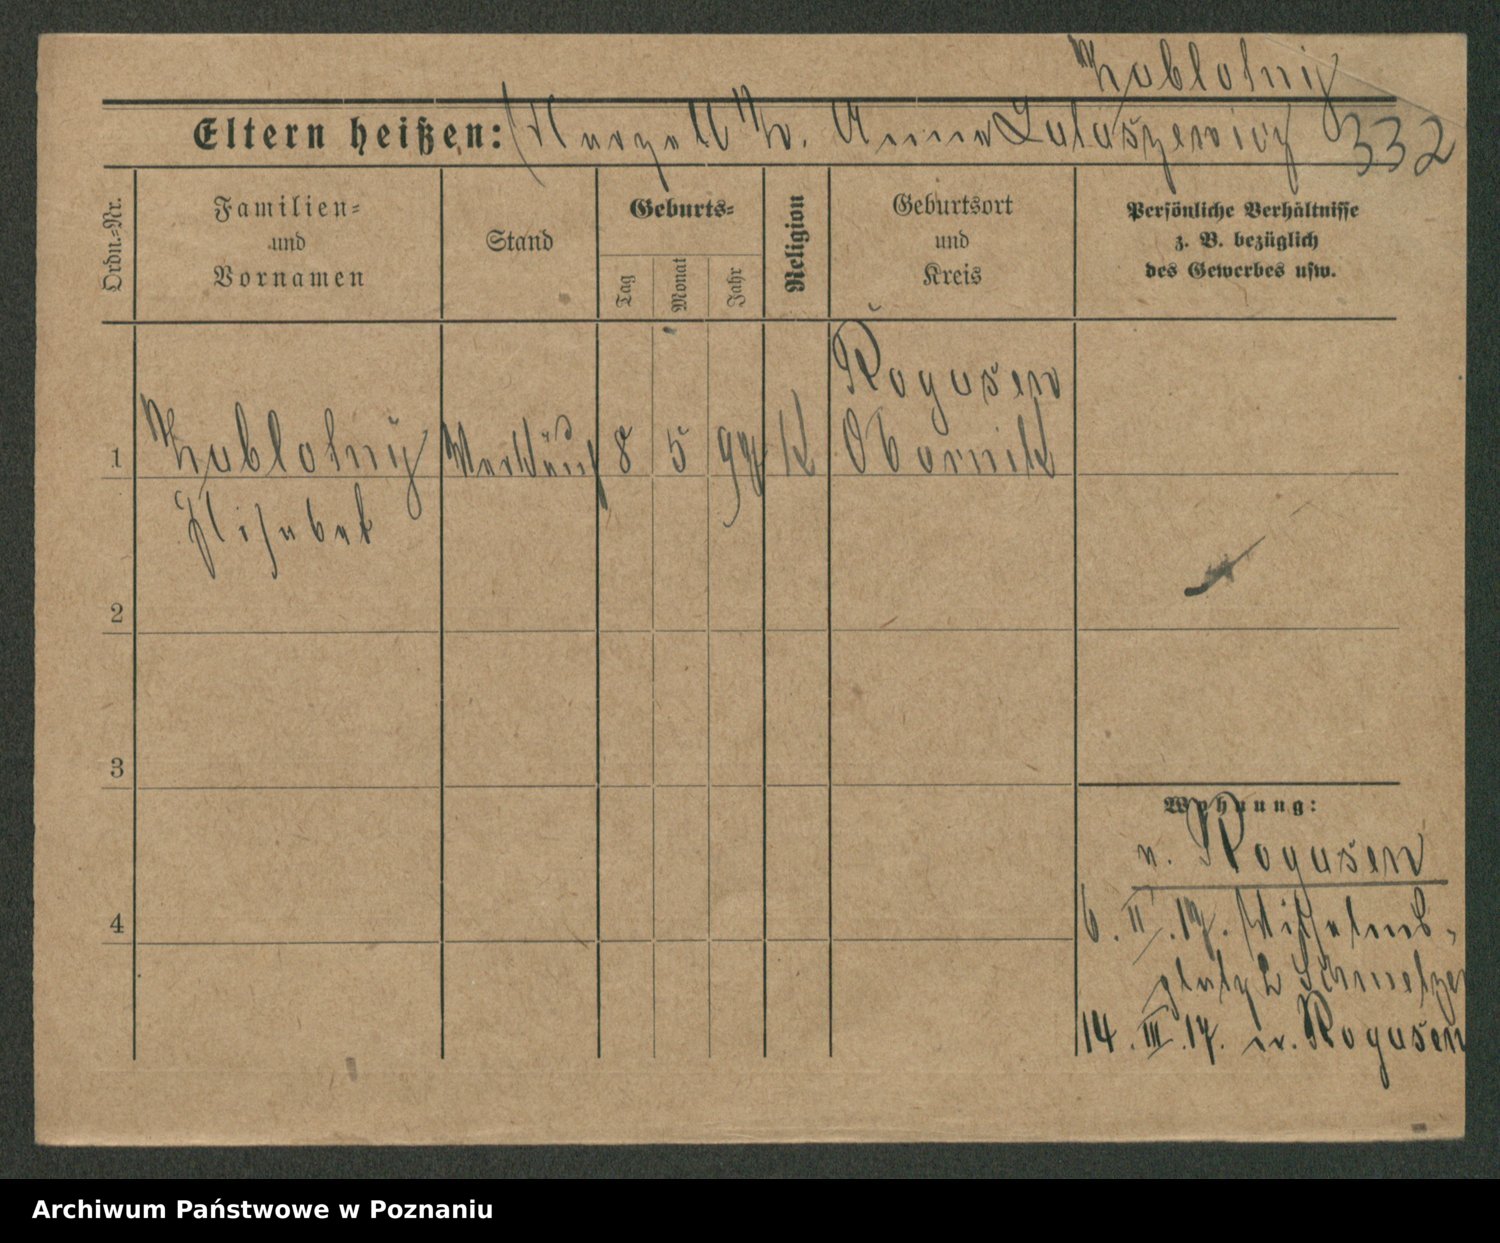 Zablotny
Eltern heißen: Marzell Z. Anna Lukaszewicz 332
Ordn.-Nr.
Familien-
und
Vornamen
Stand
Geburts-
Tag
Monat
Jahr
Religion
Geburtsort
und
Kreis
Persönliche Verhältnisse
z. B. bezüglich
des Gewerbes usw.
Rogasen
1 Zablotny Verkäuf 8 5 97 K Obornik
Elisabet
2
3
4
Wohnung:
n. Rogasen
6. II. 17. Wilhelms-
platz 2 Schmelzer
14. III. 17. n. Rogasen
Archiwum Państwowe w Poznaniu